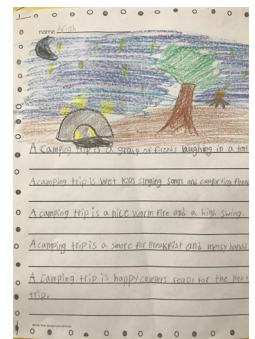 name
A camping trip is a group of friends laughing in a
A camping trip is wet kids singing songs and
A camping trip is a nice warm fire and a high swing.
A camping trip is a smore for breakfast and messy
A camping trip is happy campers ready for the
trip.